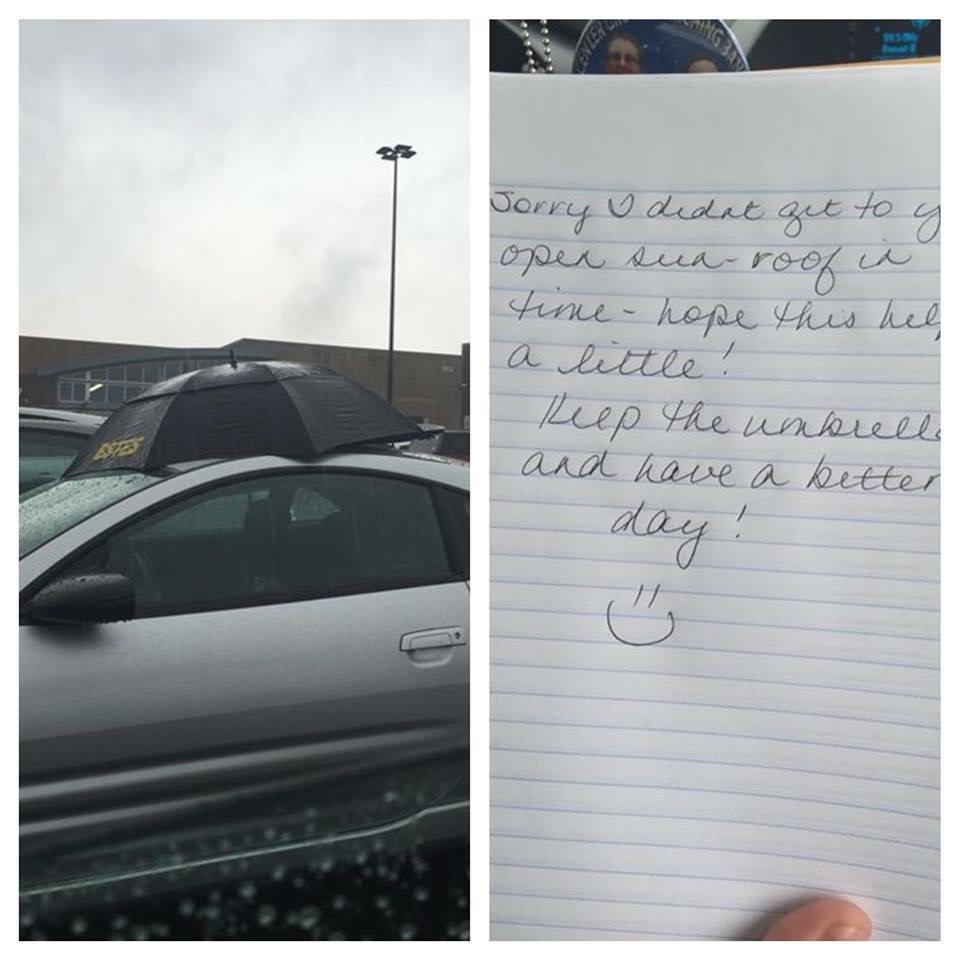 ESTES
CENTER GRO
CHING BA
Sorry I didnt get to y
open sun-roof in
time - hope this hel
a little!
Keep the umbrell
and have a better
day!